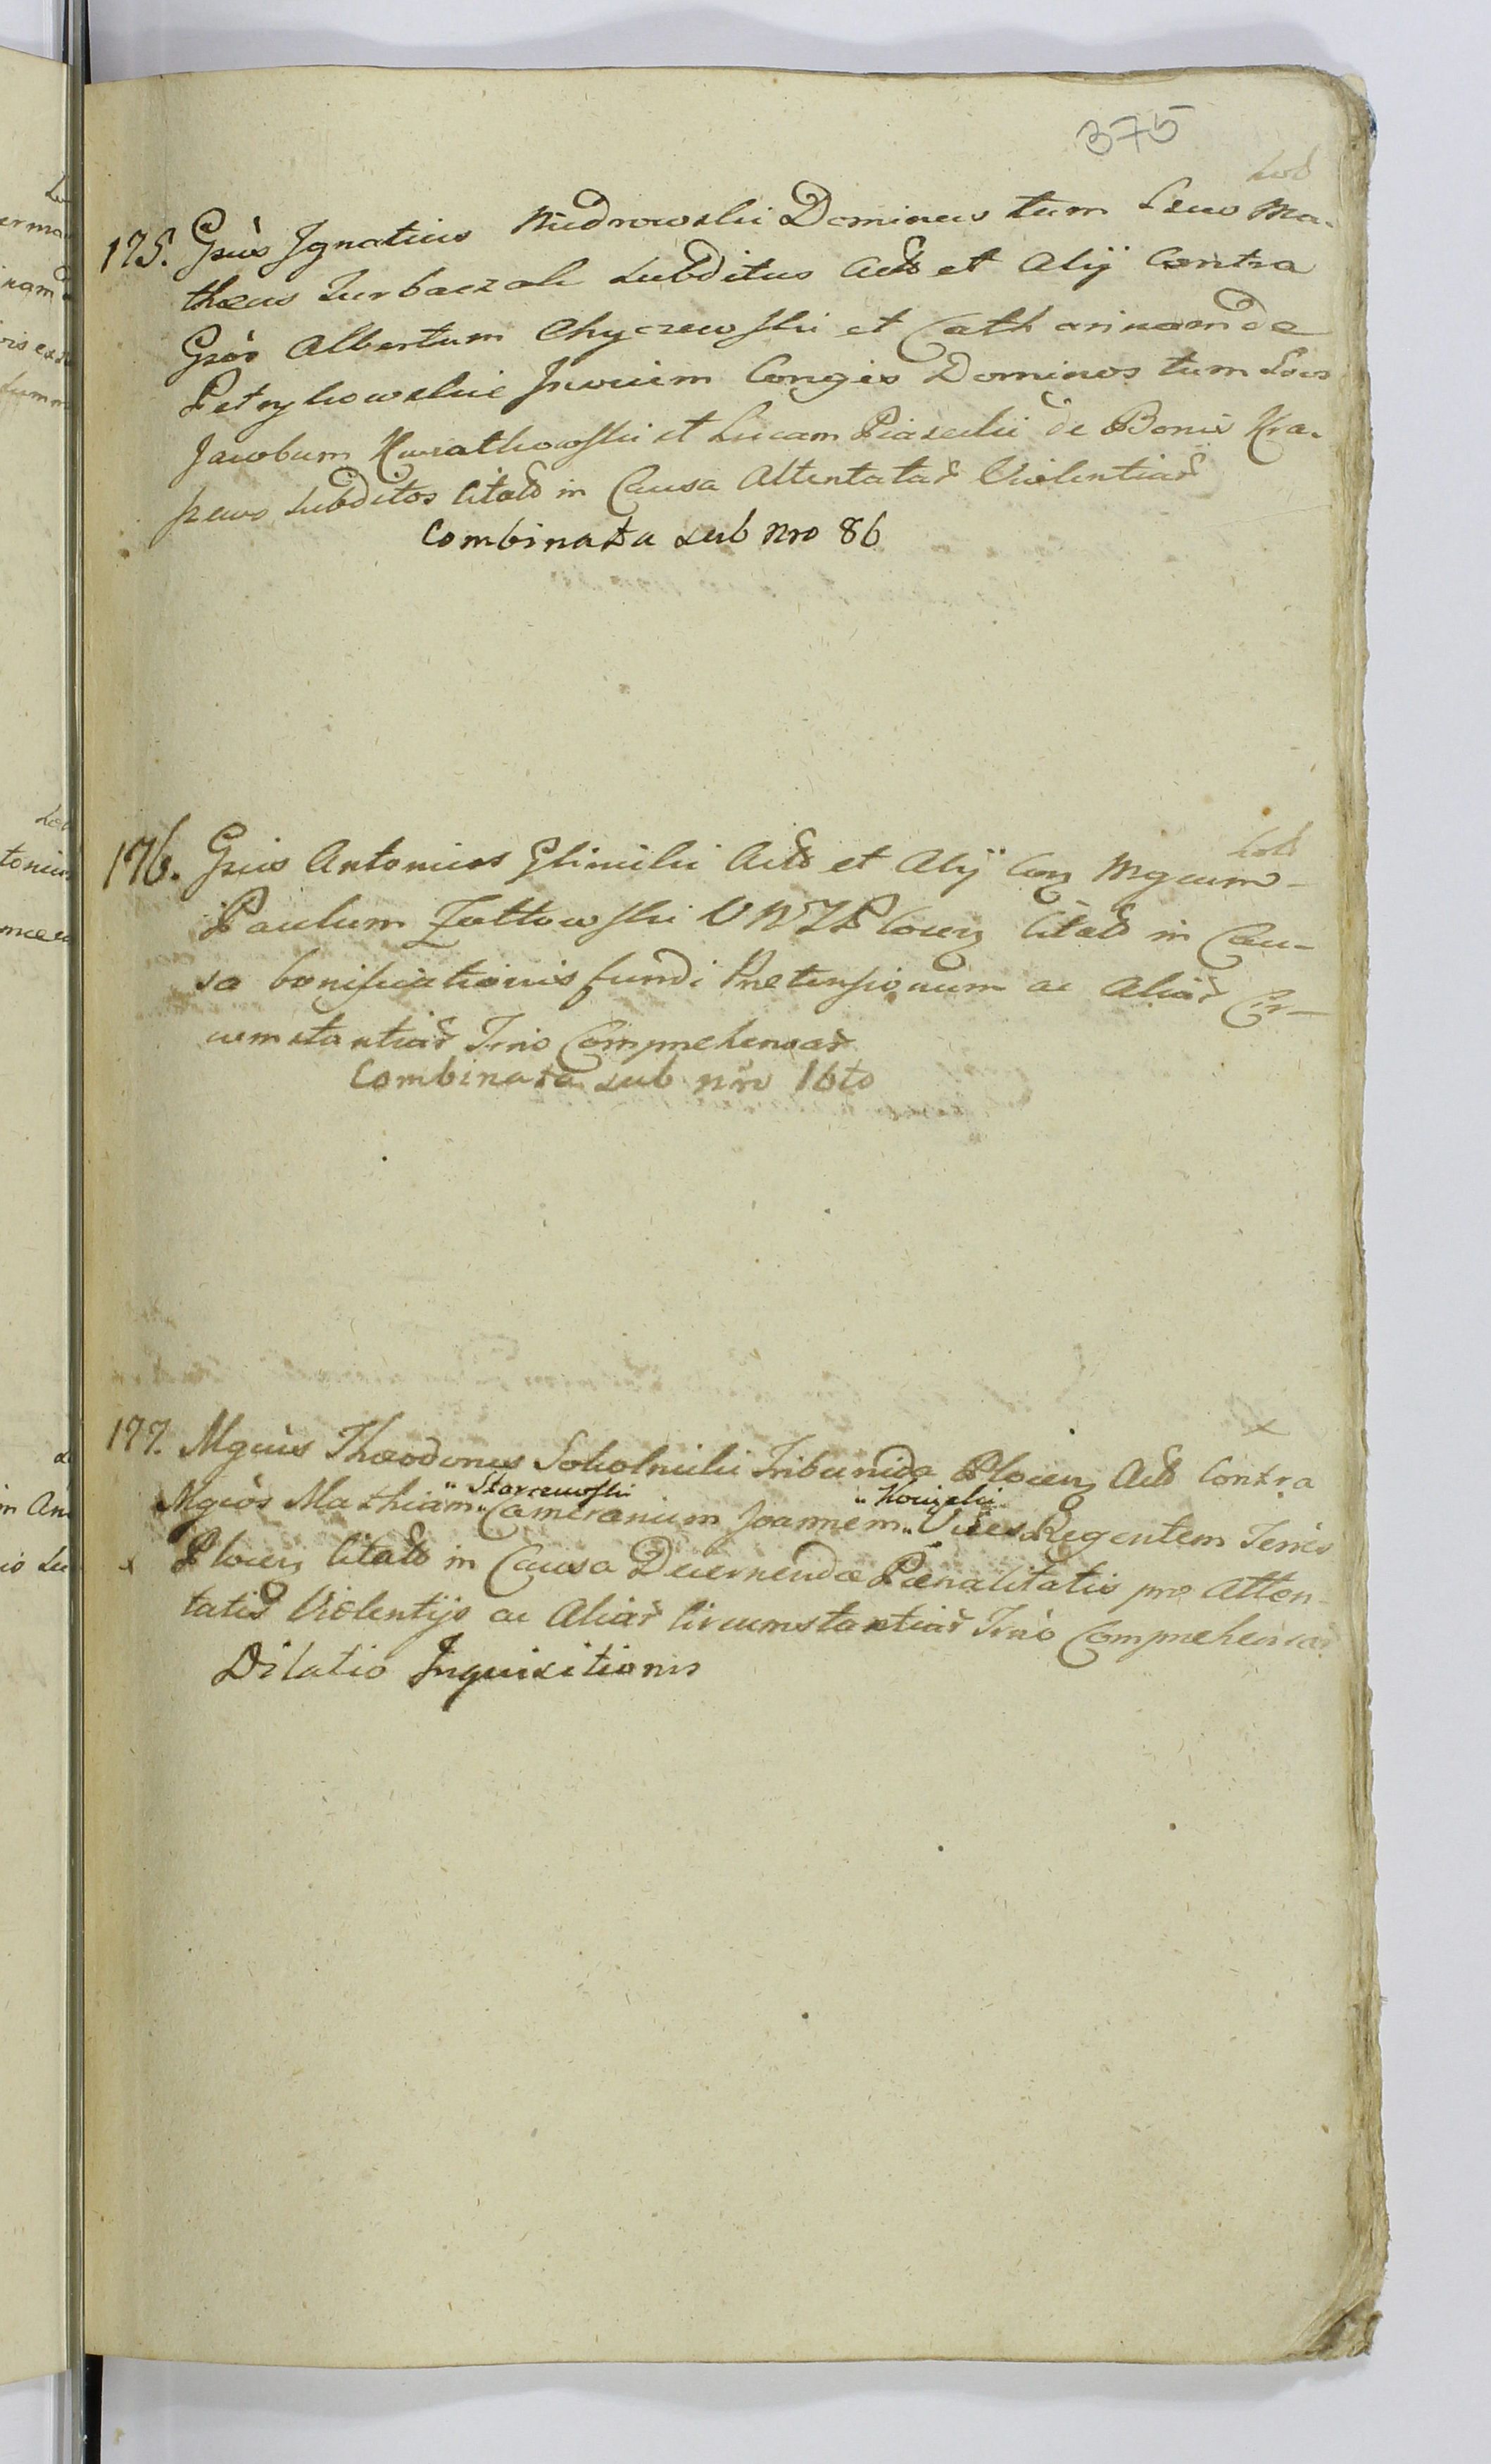 375
175. Gsus Ignatius Mudrowski Dominus tum Lsus Ma-
thæus Turbaczak subditus Acts et Alij Contra
Gsos Albertum Chyczewski et Catharinam de
Petrykowskie Juvium Conges Dominos tum Los
Jacobum Kurathowski et Lucam Piasecki de Bonis Kra-
szewo subditos Citats in Causa Attentatar Violentiar
Combinata sub Nro 86
176. Gsus Antonius Glinicki Acts et Alij Con Mgcum
Paulum Zołtowski V N T Plocen Citats in Cau-
sa bonificationis fundi Prætensionum ac Aliar Cir-
cumstantiar Trio Comprehensar
Combinata sub nro 16to
177. Mgcus Theodorus Sokolnicki Tribunida Plocen Acts Contra
" Starzewski " Kowzelii
Mgcos Mathiam " Camerarium Joannem " Vices Regentem Terris
x Plocen Citats in Causa Decernendæ Pænalitatis pro Atten-
tatis Violentijs ac Aliar Circumstantiar Trio Comprehensar
Dilatio Inquisitionis